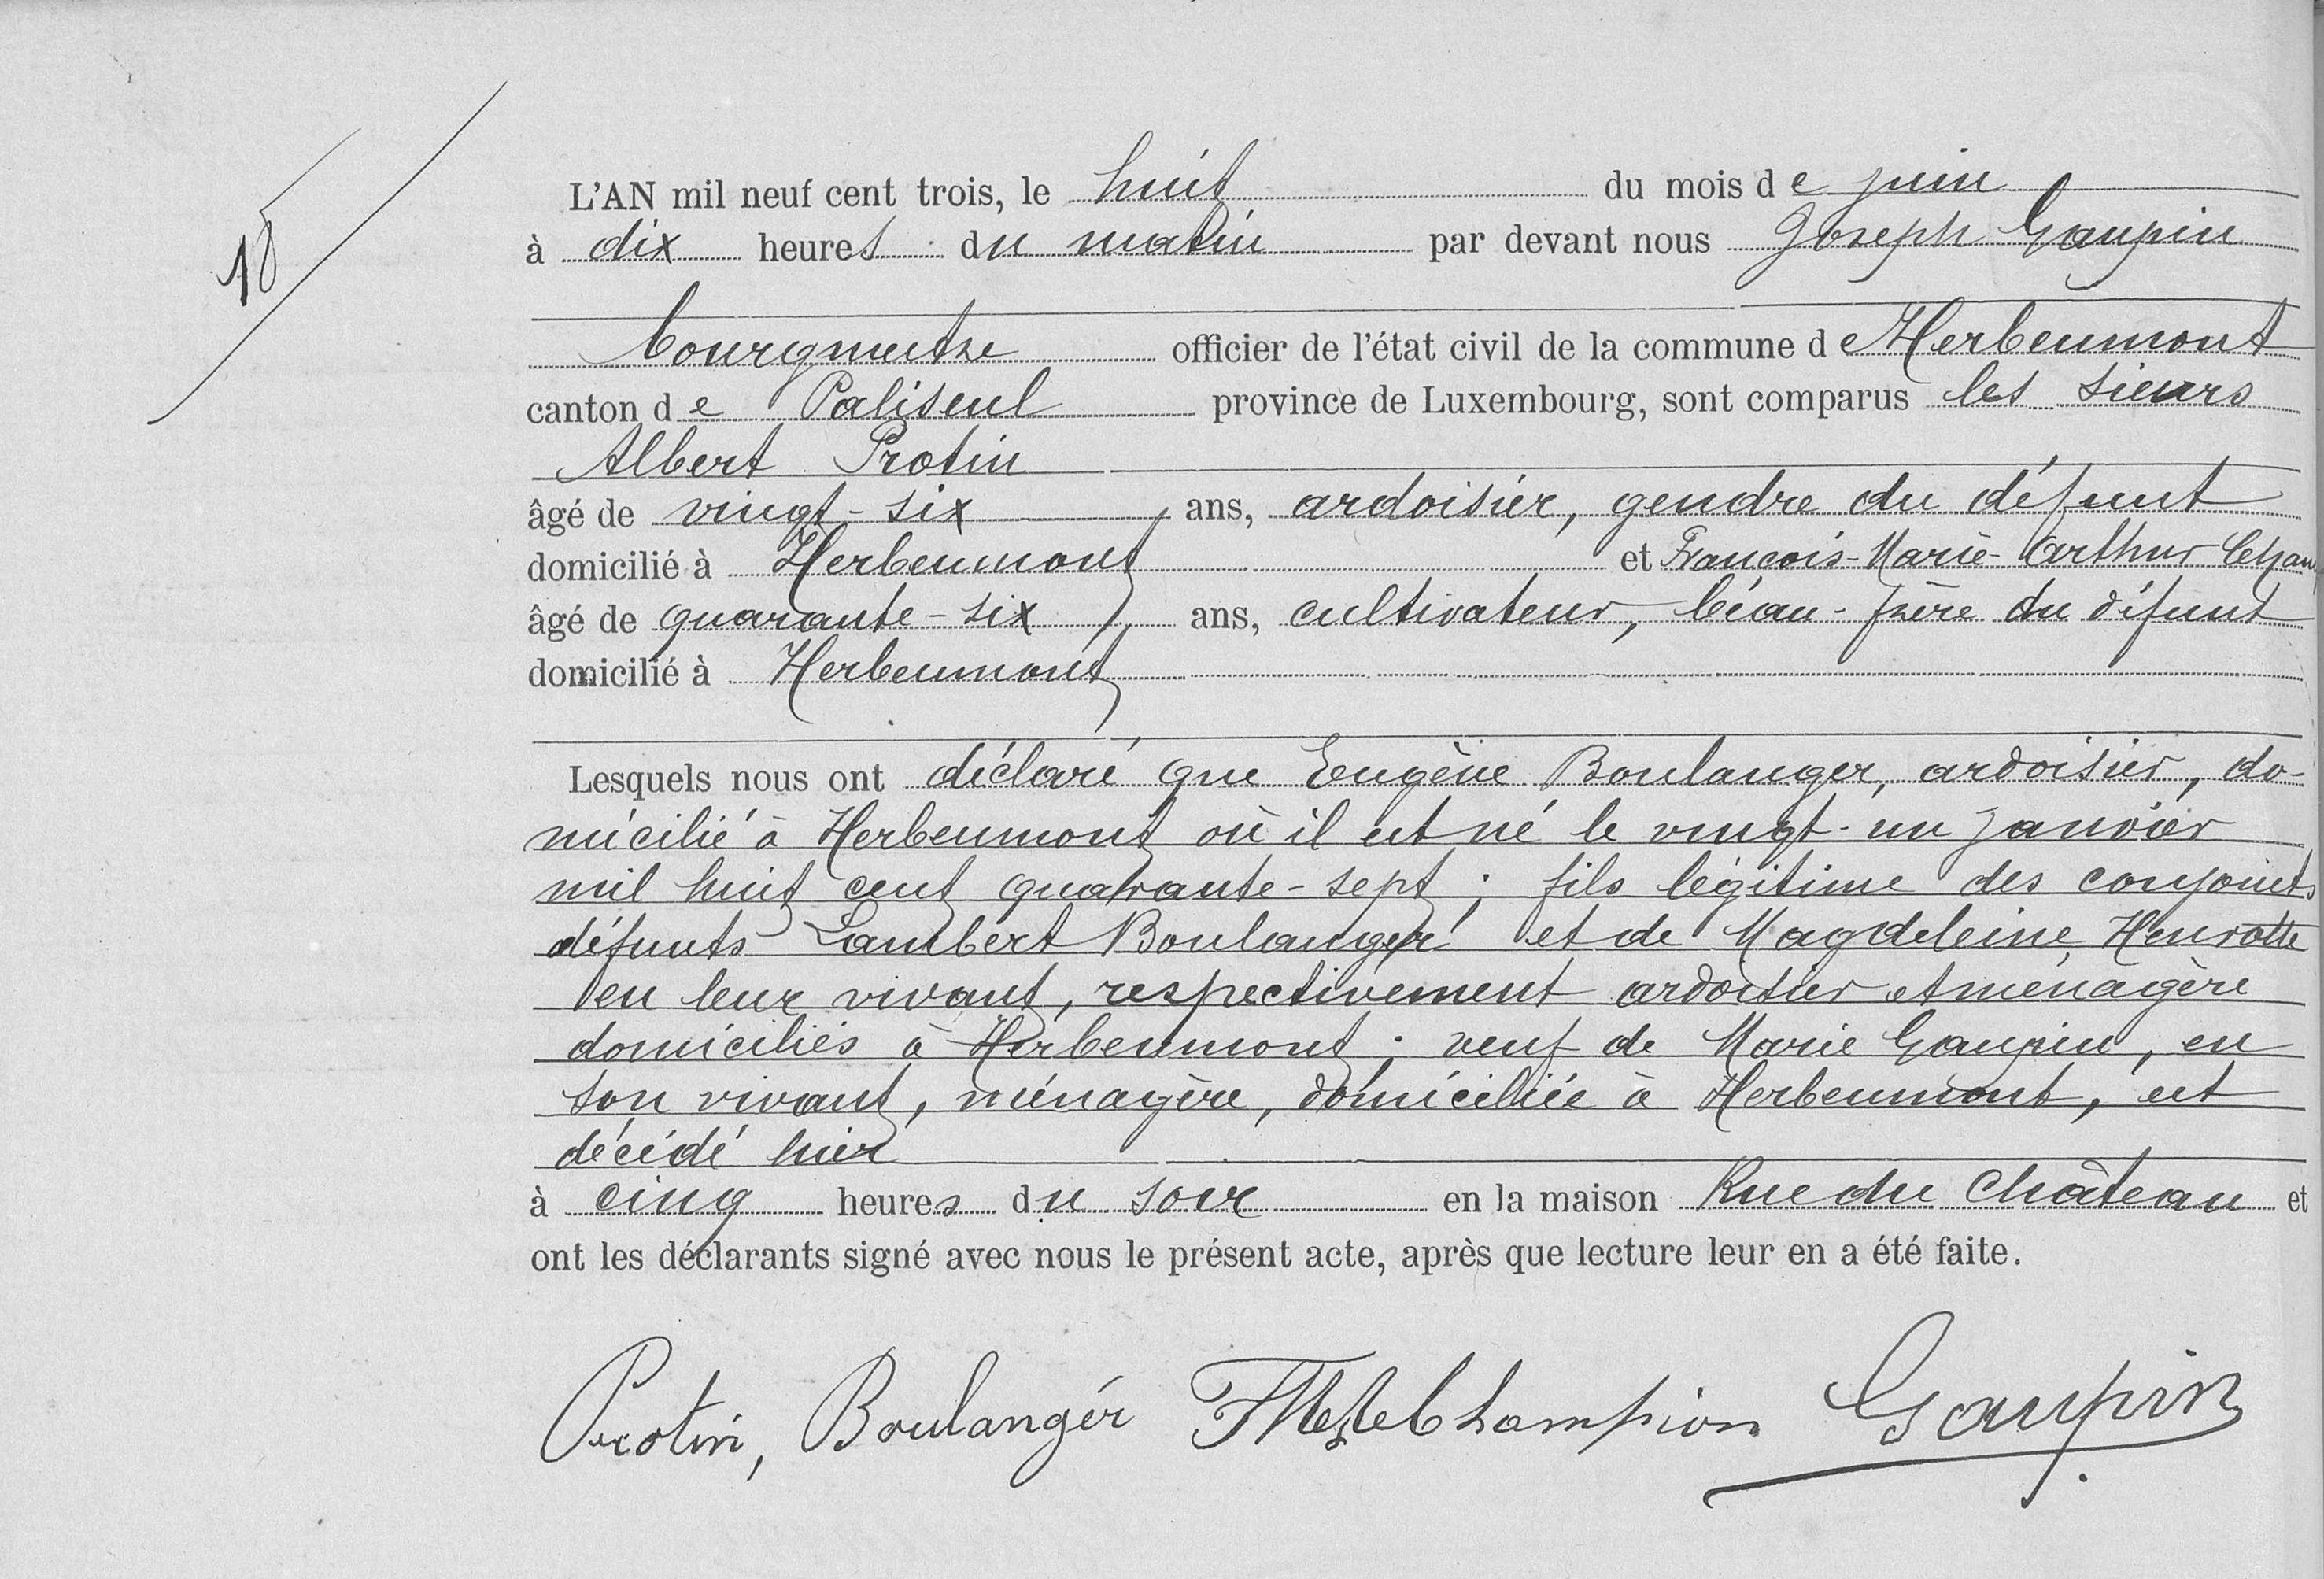 18
L'AN mil neuf cent trois, le huit du mois de juin
à dix heures du matin par devant nous Joseph Gaupin
bourgmestre officier de l'état civil de la commune de Herbeumont
canton de Paliseul province de Luxembourg, sont comparus les sieurs
Albert Protin
âgé de vingt-six ans, ardoisier, gendre du défunt
domicilié à Herbeumont et François-Marie-Arthur Cham
âgé de quarante-six ans, cultivateur, beau-frère du défunt
domicilié à Herbeumont
Lesquels nous ont déclaré que Eugène Boulanger, ardoisier, do-
micilié à Herbeumont où il est né le vingt-un janvier
mil huit cent quarante-sept; fils légitime des conjoints
défunts Lambert Boulanger et de Magdeleine Henrotte
en leur vivant, respectivement ardoisier et ménagère
domiciliés à Herbeumont; veuf de Marie Gaupin, en
son vivant, ménagère, domiciliée à Herbeumont, est
décédé hier
à cinq heures du soir en la maison Rue du Château et
ont les déclarants signé avec nous le présent acte, après que lecture leur en a été faite.
Protin, Boulanger Champion Gaupin